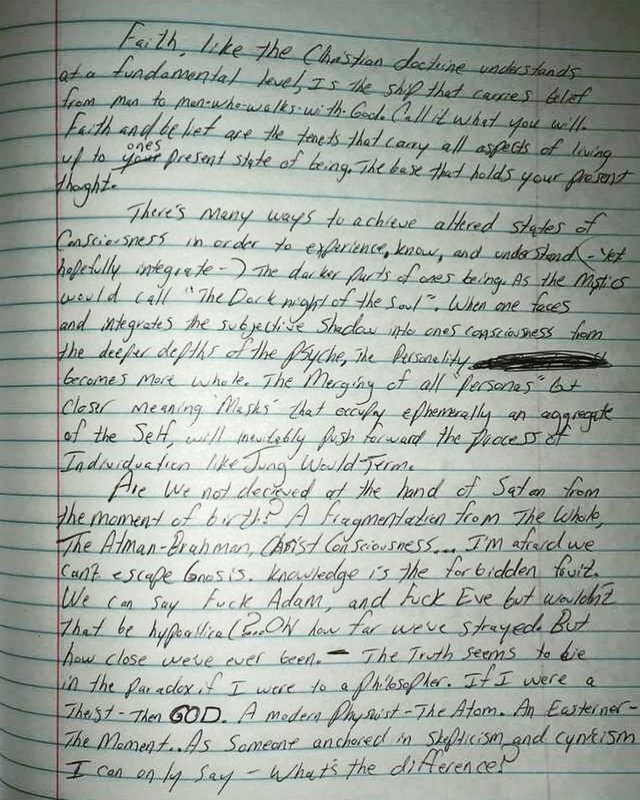 Faith, like the Christian doctrine understands
at a fundamental level, Is the ship that carries belief
from man to man-who-walks-with-God. Call it what you will.
Faith and belief are the tenets that carry all aspects of living
ones
up to your present state of being. The base that holds your present
thought.
There's many ways to achieve altered states of
Consciousness in order to experience, know, and understand (-Yet
hopefully integrate-) The darker parts of ones being. As the Mystics
would call "The Dark night of the Soul". When one faces
and integrates the subjective Shadow into ones consciousness from
the deeper depths of the Psyche, The Personality
becomes More whole. The Merging of all "personas" but
closer meaning 'Masks' that occupy ephemerally an aggregate
of the Self, will inevitably push forward the process of
Individuation like Jung Would Term.
Are we not decieved at the hand of Satan from
the moment of birth? A Fragmentation from The Whole,
The Atman-Brahman, Christ Consciousness... I'm afraid we
can't escape Gnosis. Knowledge is the forbidden fruit.
We can say Fuck Adam, and Fuck Eve but wouldn't
that be hypocritical?...Oh how far we've strayed. But
how close we've ever been. - The Truth seems to lie
in the Paradox if I were to a philosopher. If I were a
Theist-Then GOD. A modern Physicist-The Atom. An Easterner-
The Moment.. As Someone anchored in skepticism and cynicism
I can only say - What's the difference?